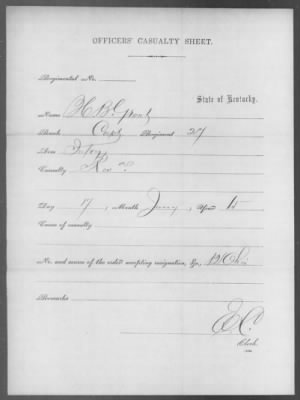 OFFICERS' CASUALTY SHEET.
Regimental No.
State of Kentucky.
Name H B Grant
Rank Capt Regiment 27
Arm Infty
Casualty
Day 7, Month Jany, Year
Cause of casualty
No. and source of the order accepting resignation, &c.,
Remarks
E.C.
Clerk.